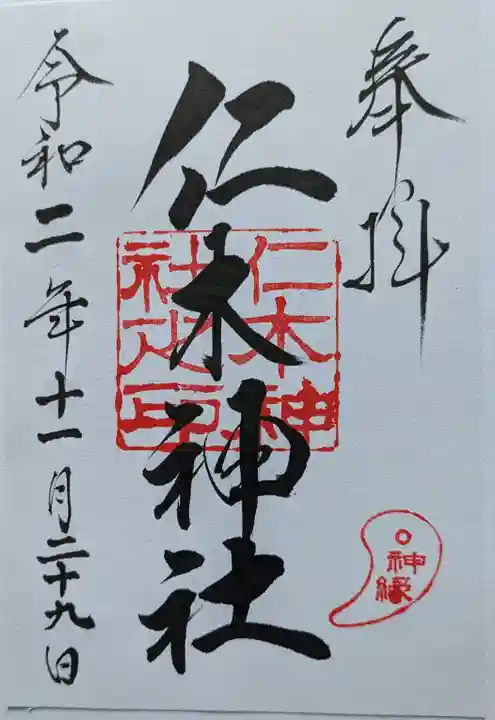 奉拝
仁木神社
仁木神
社之印
神縁
令和二年十一月二十九日